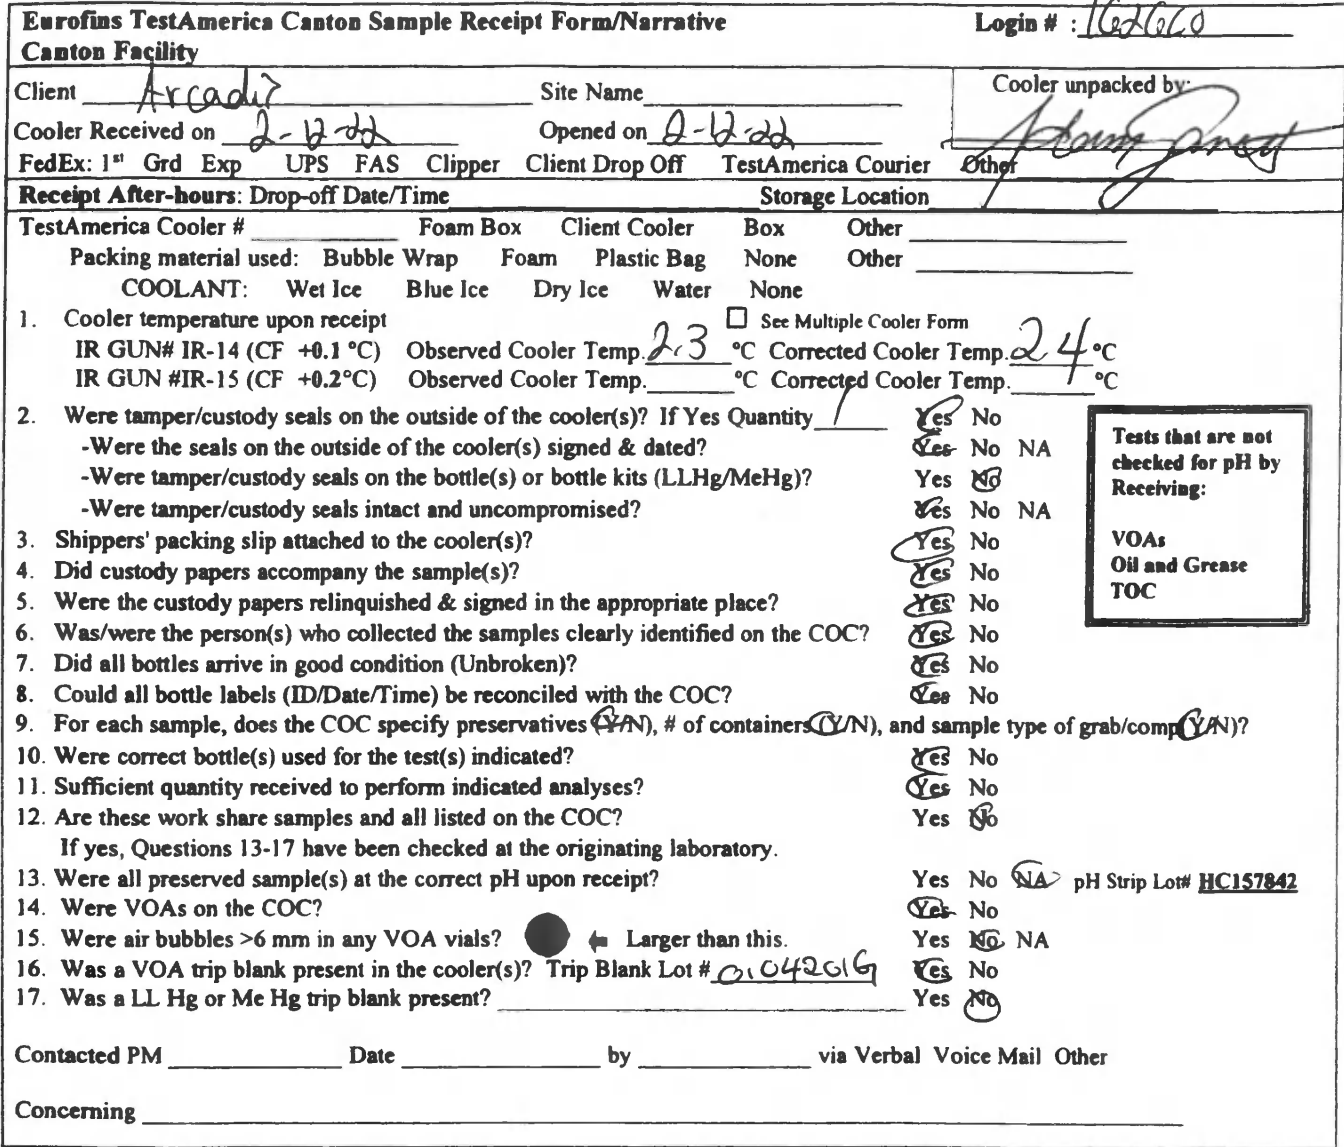 Eurofins TestAmerica Canton Sample Receipt Form/Narrative Login # : 162660
Canton Facility
Client Arcadis Site Name Cooler unpacked by:
Cooler Received on 2-12-22 Opened on 2-12-22
FedEx: 1st Grd Exp UPS FAS Clipper Client Drop Off TestAmerica Courier Other
Receipt After-hours: Drop-off Date/Time Storage Location
TestAmerica Cooler # Foam Box Client Cooler Box Other
Packing material used: Bubble Wrap Foam Plastic Bag None Other
COOLANT: Wet Ice Blue Ice Dry Ice Water None
1. Cooler temperature upon receipt ☐ See Multiple Cooler Form
IR GUN# IR-14 (CF +0.1 °C) Observed Cooler Temp. 2.3 °C Corrected Cooler Temp. 2.4 °C
IR GUN #IR-15 (CF +0.2°C) Observed Cooler Temp. °C Corrected Cooler Temp. °C
2. Were tamper/custody seals on the outside of the cooler(s)? If Yes Quantity 1 Yes No
-Were the seals on the outside of the cooler(s) signed & dated? Yes No NA
-Were tamper/custody seals on the bottle(s) or bottle kits (LLHg/MeHg)? Yes No
-Were tamper/custody seals intact and uncompromised? Yes No NA
Tests that are not
checked for pH by
Receiving:
VOAs
Oil and Grease
TOC
3. Shippers' packing slip attached to the cooler(s)? Yes No
4. Did custody papers accompany the sample(s)? Yes No
5. Were the custody papers relinquished & signed in the appropriate place? Yes No
6. Was/were the person(s) who collected the samples clearly identified on the COC? Yes No
7. Did all bottles arrive in good condition (Unbroken)? Yes No
8. Could all bottle labels (ID/Date/Time) be reconciled with the COC? Yes No
9. For each sample, does the COC specify preservatives (Y/N), # of containers (Y/N), and sample type of grab/comp (Y/N)?
10. Were correct bottle(s) used for the test(s) indicated? Yes No
11. Sufficient quantity received to perform indicated analyses? Yes No
12. Are these work share samples and all listed on the COC? Yes No
If yes, Questions 13-17 have been checked at the originating laboratory.
13. Were all preserved sample(s) at the correct pH upon receipt? Yes No NA pH Strip Lot# HC157842
14. Were VOAs on the COC? Yes No
15. Were air bubbles >6 mm in any VOA vials? Larger than this. Yes No NA
16. Was a VOA trip blank present in the cooler(s)? Trip Blank Lot # 01042016 Yes No
17. Was a LL Hg or Me Hg trip blank present? Yes No
Contacted PM Date by via Verbal Voice Mail Other
Concerning